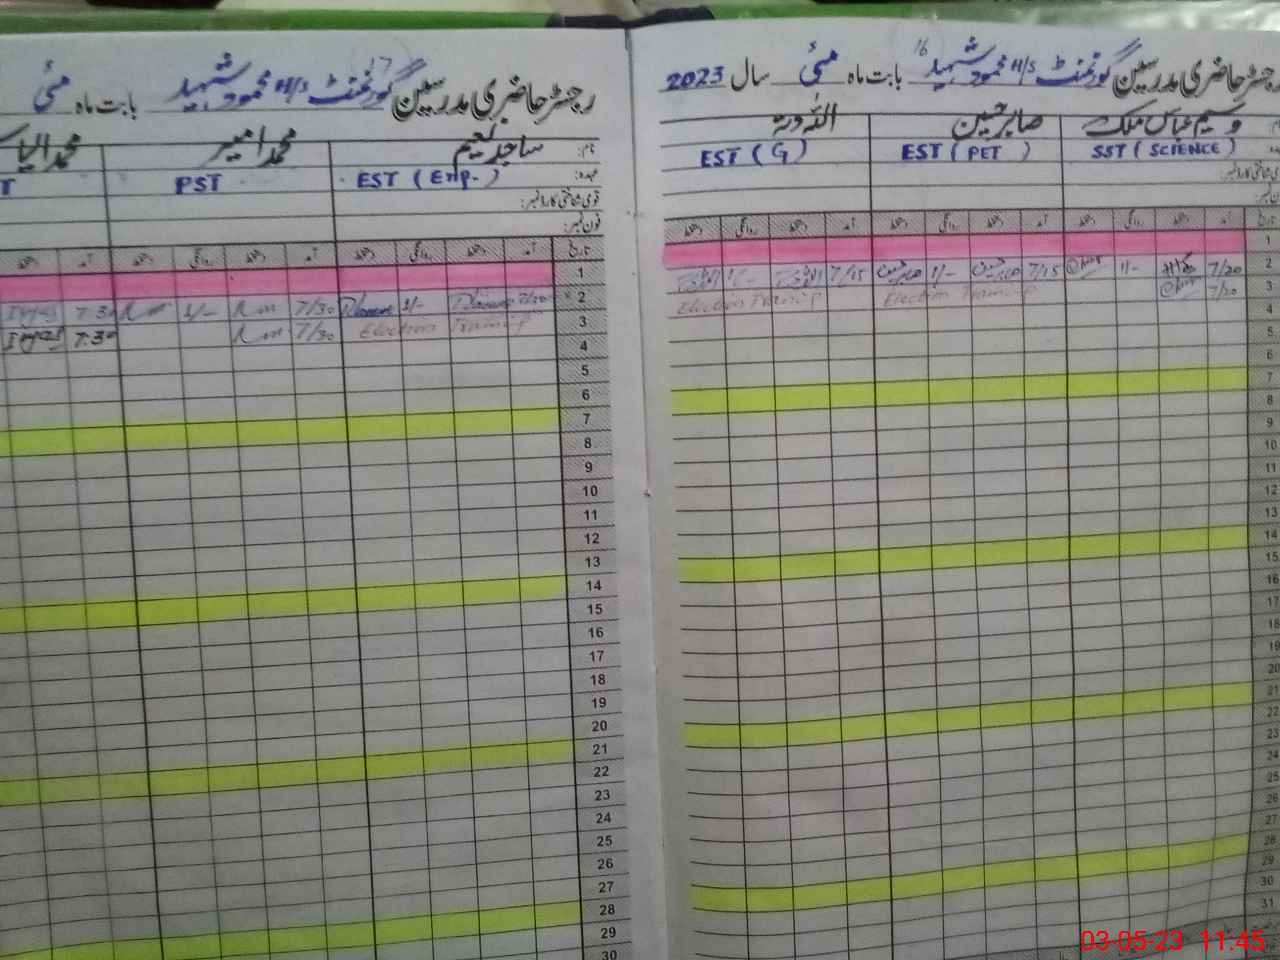 16
رجسٹر حاضری مدرسین گورنمنٹ H/S محمود شہید بابت ماہ مئی سال 2023
وسیم عباس ملک صابر حسین اللہ دتہ
SST (SCIENCE) EST (PET) EST (G)
قومی شناختی کارڈ نمبر:
فون نمبر:
تاریخ آمد دستخط روانگی دستخط آمد دستخط روانگی دستخط آمد دستخط روانگی دستخط
1
2 7/20 1/- 7/15 صابر حسین 1/- صابر حسین 7/15 1/-
3 7/20 Election Training Election Training
4
5
6
7
8
9
10
11
12
13
14
15
16
17
18
19
20
21
22
23
24
25
26
27
28
29
30
31
17
رجسٹر حاضری مدرسین گورنمنٹ H/S محمود شہید بابت ماہ مئی
نام: ساجد نعیم محمد امیر محمد الیاس
عہدہ: EST (Eng.) PST T
قومی شناختی کارڈ نمبر:
فون نمبر:
تاریخ آمد دستخط روانگی دستخط آمد دستخط روانگی دستخط آمد دستخط
1
2 7/20 1/- 7/30 1/- 7.30 Ilyas
3 Election Training 7/30 7.30 Ilyas
4
5
6
7
8
9
10
11
12
13
14
15
16
17
18
19
20
21
22
23
24
25
26
27
28
29
30
03-05-23 11:45